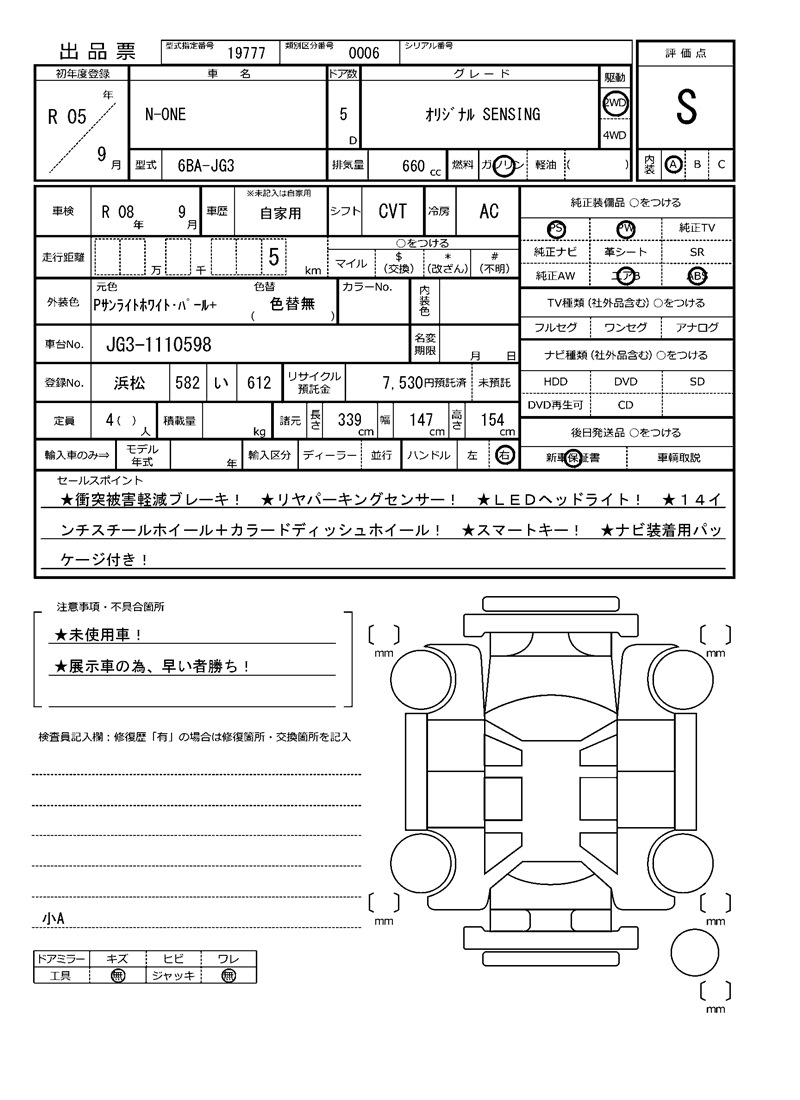 出品票 型式指定番号 19777 類別区分番号 0006 シリアル番号
評価点
S
内装 A B C
初年度登録 車名 ドア数 グレード 駆動
R 05 年 9 月 N-ONE 5 D ｵﾘｼﾞﾅﾙ SENSING 2WD 4WD
型式 6BA-JG3 排気量 660 cc 燃料 ガソリン 軽油 ( )
※未記入は自家用
車検 R 08 年 9 月 車歴 自家用 シフト CVT 冷房 AC
走行距離 万 千 5 km ○をつける
マイル $ (交換) * (改ざん) # (不明)
外装色 元色 色替 カラーNo. 内装色
Pｻﾝﾗｲﾄﾎﾜｲﾄ･ﾊﾟｰﾙ+ ( 色替無 )
車台No. JG3-1110598 名変期限 月 日
登録No. 浜松 582 い 612 リサイクル預託金 7,530円預託済 未預託
定員 4( ) 人 積載量 kg 諸元 長さ 339 cm 幅 147 cm 高さ 154 cm
輸入車のみ⇒ モデル年式 年 輸入区分 ディーラー 並行 ハンドル 左 右
純正装備品 ○をつける
PS PW 純正TV
純正ナビ 革シート SR
純正AW エアB ABS
TV種類 (社外品含む) ○をつける
フルセグ ワンセグ アナログ
ナビ種類 (社外品含む) ○をつける
HDD DVD SD
DVD再生可 CD
後日発送品 ○をつける
新車保証書 車輌取説
セールスポイント
★衝突被害軽減ブレーキ！ ★リヤパーキングセンサー！ ★ＬＥＤヘッドライト！ ★１４イ
ンチスチールホイール＋カラードディッシュホイール！ ★スマートキー！ ★ナビ装着用パッ
ケージ付き！
注意事項・不具合箇所
★未使用車！
★展示車の為、早い者勝ち！
検査員記入欄：修復歴「有」の場合は修復箇所・交換箇所を記入
小A
ドアミラー キズ ヒビ ワレ
工具 無 ジャッキ 無
mm mm
mm mm
mm